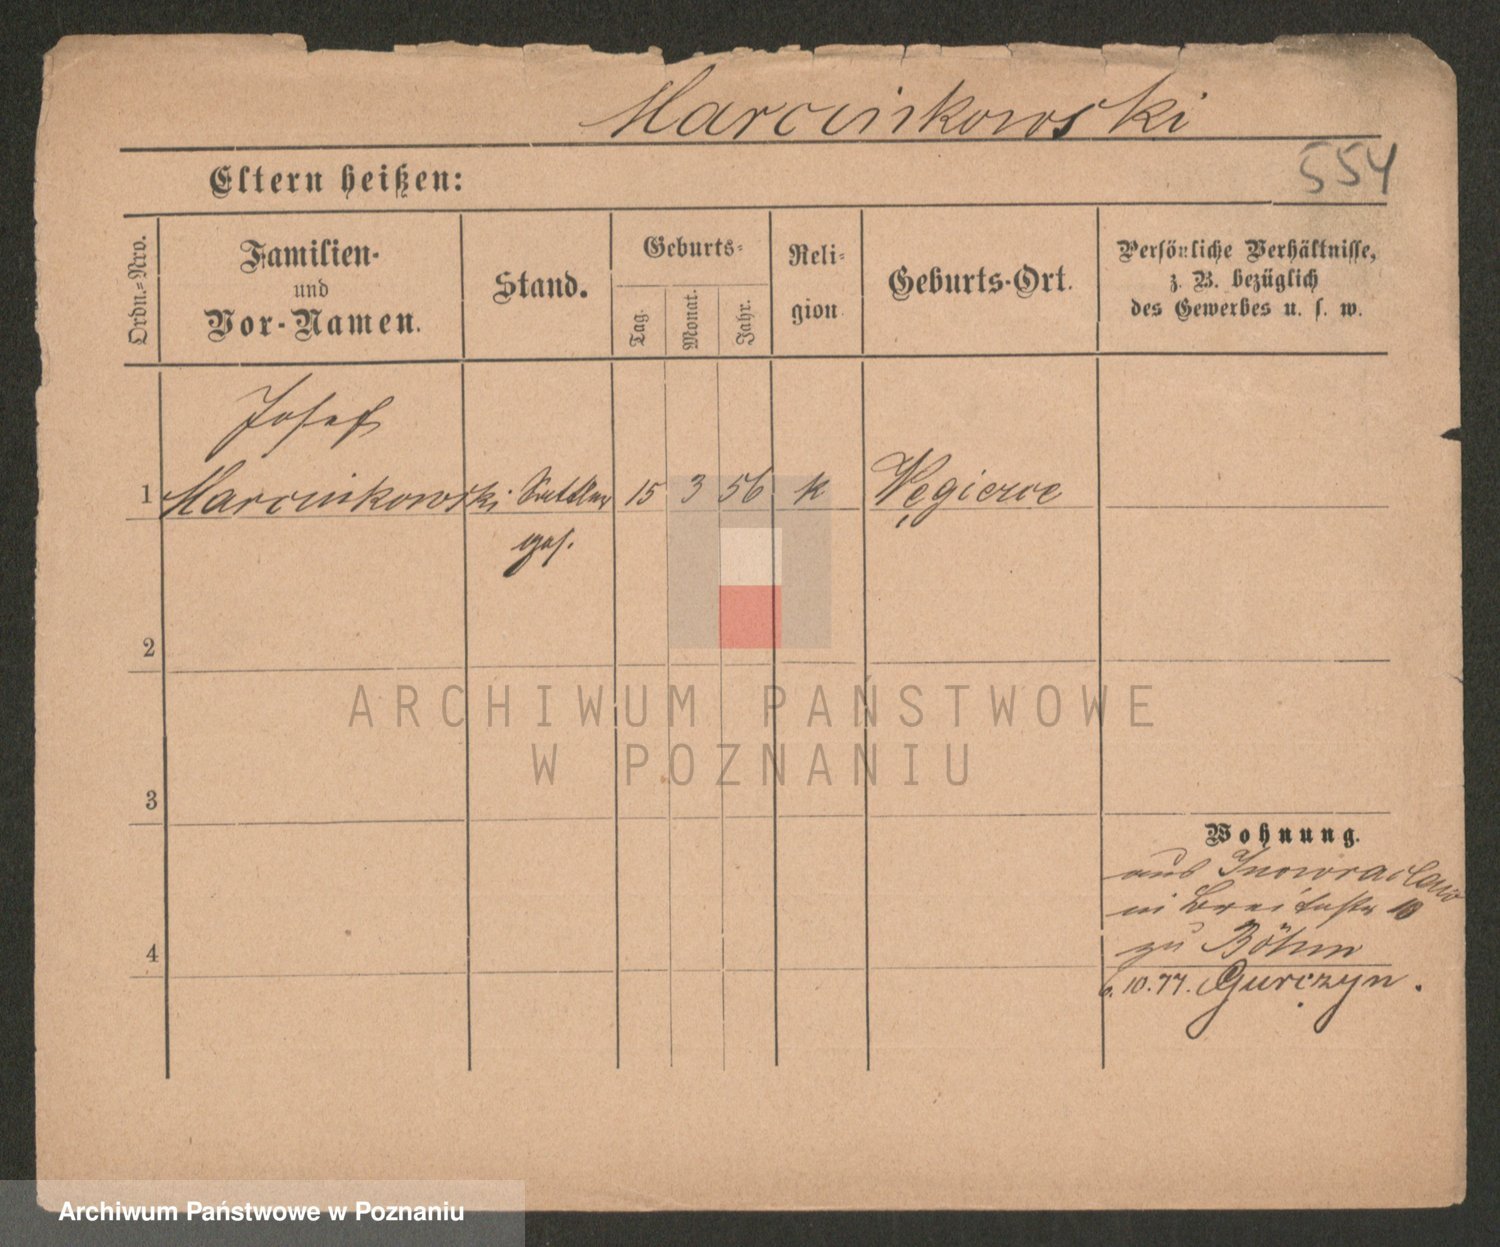 Marcinkowski
554
Eltern heißen:
Ordn.=Nro.
Familien-
und
Vor-Namen.
Stand.
Geburts-
Tag.
Monat.
Jahr.
Reli-
gion
Geburts-Ort.
Persönliche Verhältnisse,
z. B. bezüglich
des Gewerbes u. s. w.
Josef
1 Marcinkowski Sattler 15 3 56 k Węgierce
ges.
2
ARCHIWUM PAŃSTWOWE
W POZNANIU
3
Wohnung.
aus Inowraclaw
in Breitestr 10
zu Böhm
4
6.10.77. Gurczyn.
Archiwum Państwowe w Poznaniu